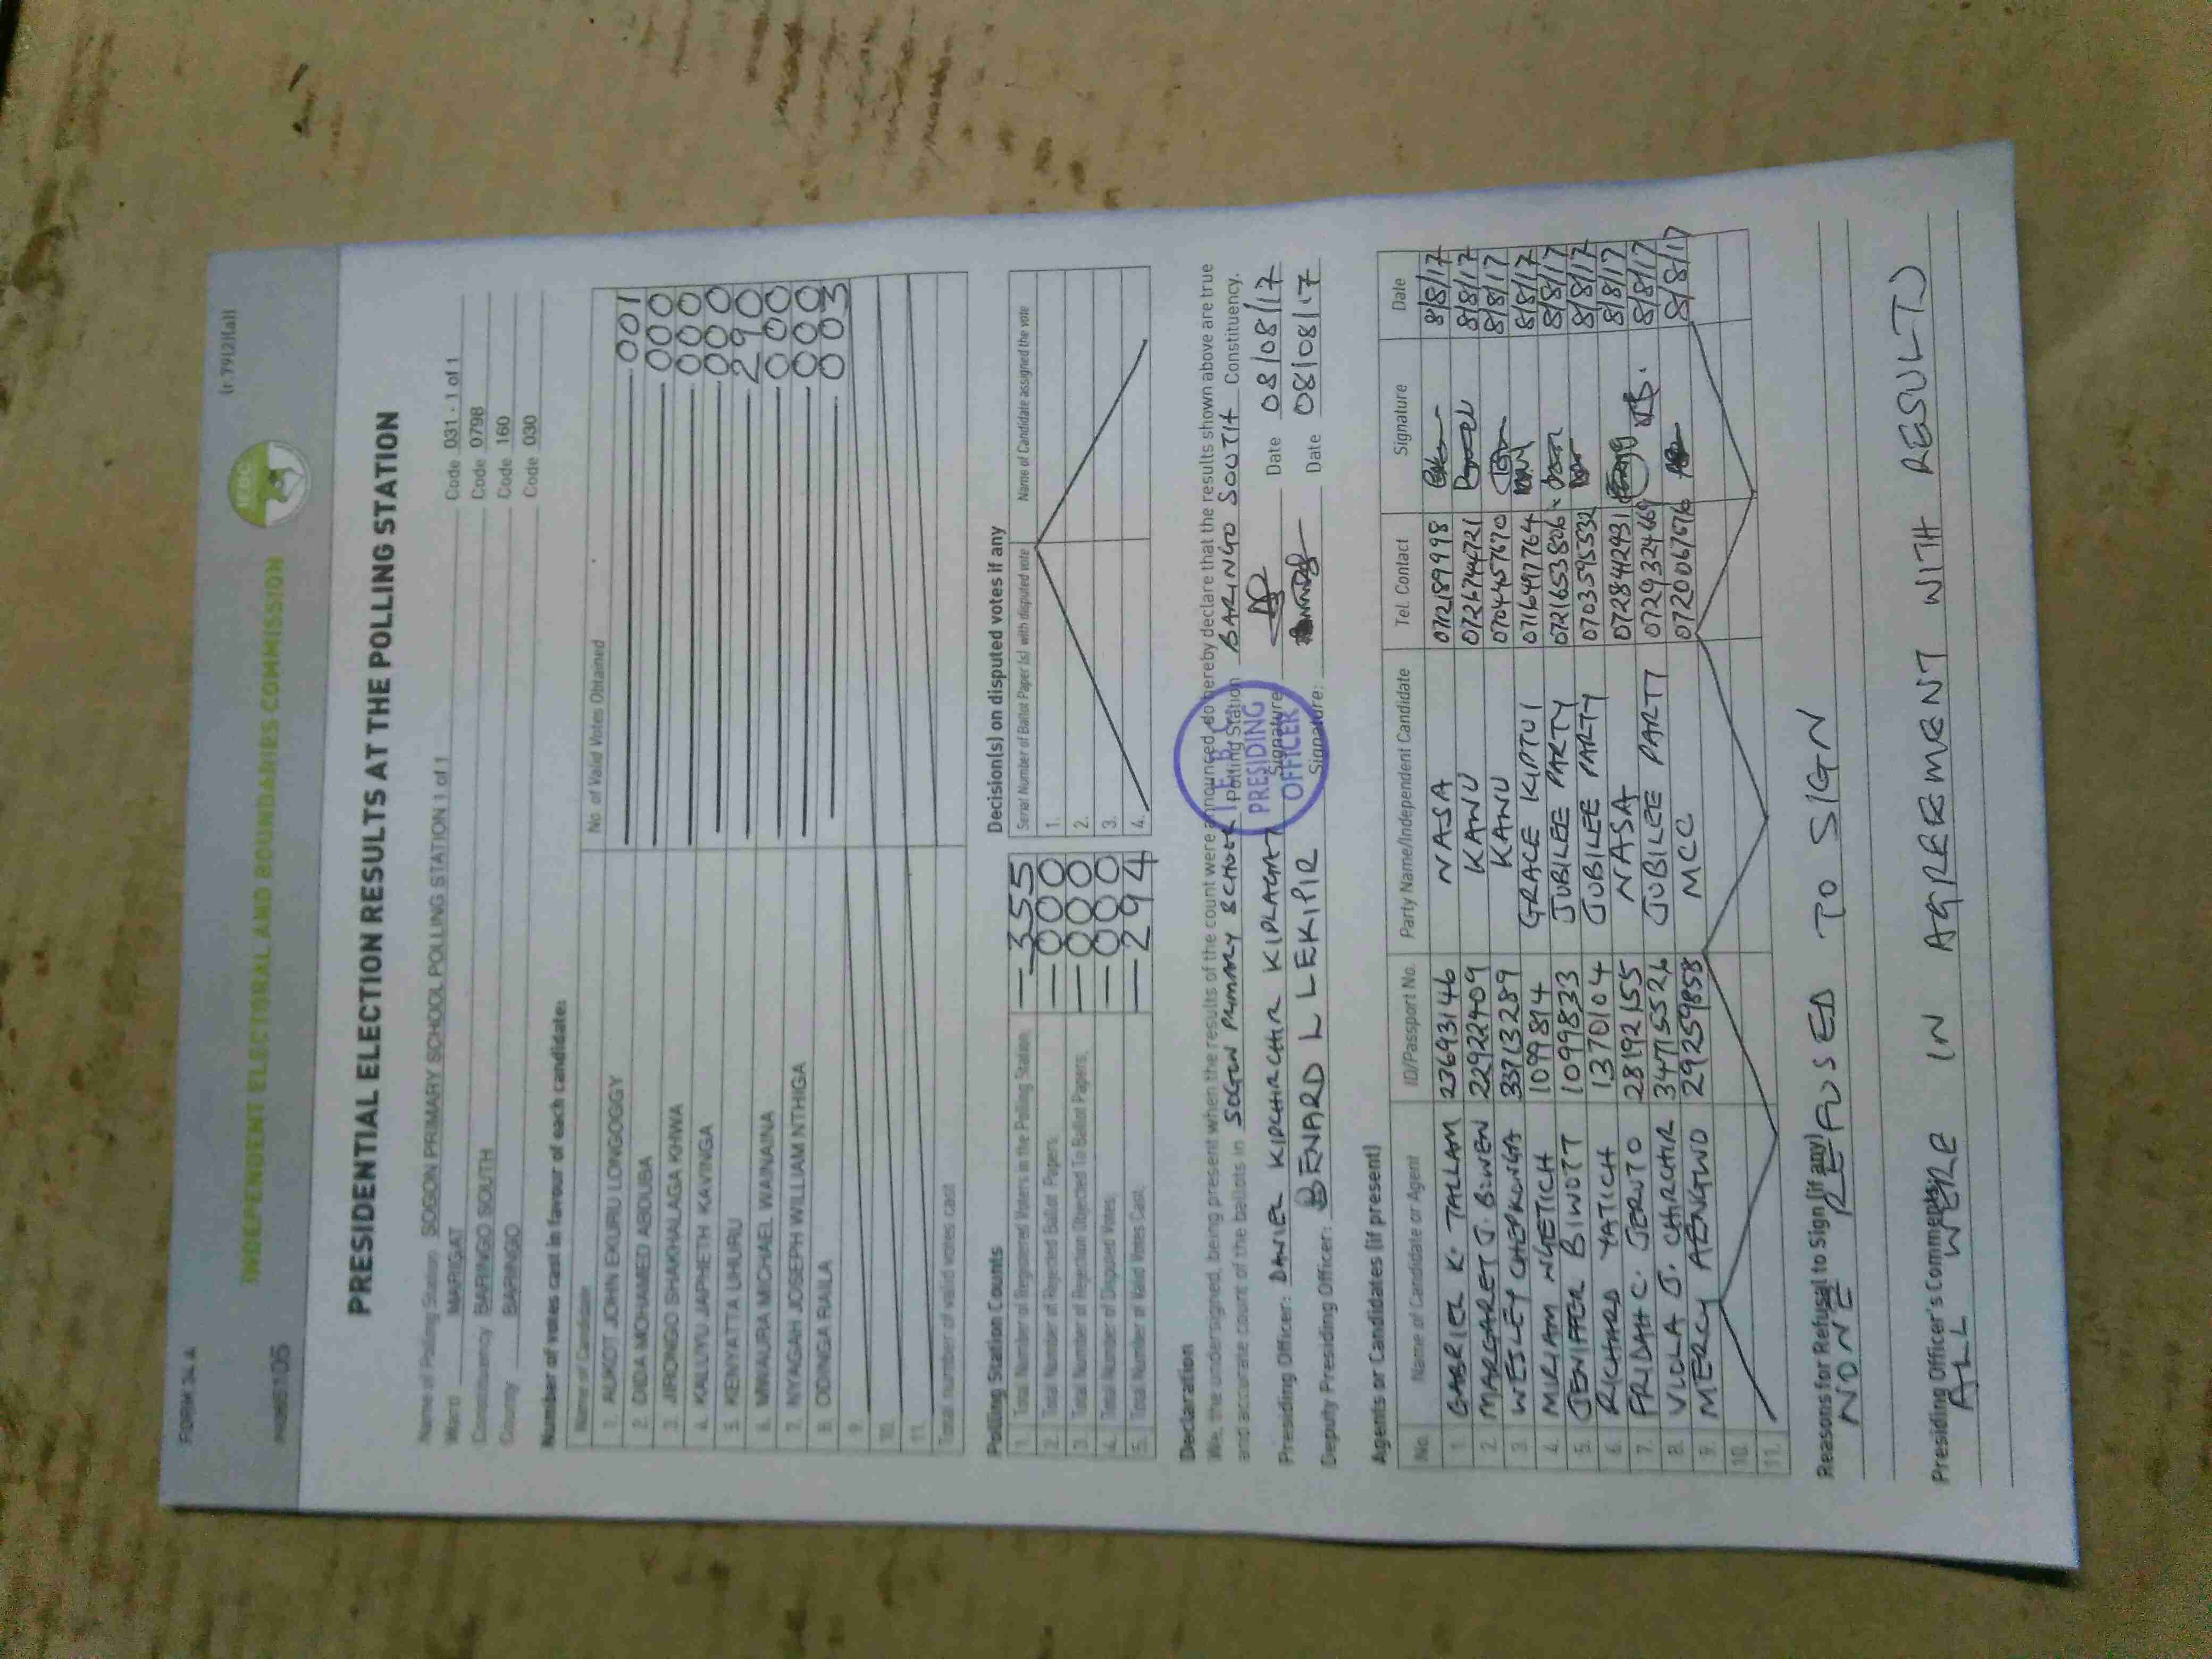 FORM 34 A
(r.79(2)(a))
IEBC
INDEPENDENT ELECTORAL AND BOUNDARIES COMMISSION
PRESIDENTIAL ELECTION RESULTS AT THE POLLING STATION
Name of Polling Station SOGON PRIMARY SCHOOL POLLING STATION 1 of 1 Code 031 - 1 of 1
Ward MARIGAT Code 0798
Constituency BARINGO SOUTH Code 160
County BARINGO Code 030
Number of votes cast in favour of each candidate:
Name of Candidate No. of Valid Votes Obtained
1. AUKOT JOHN EKURU LONGOGGY 001
2. DIDA MOHAMED ABDUBA 000
3. JIRONGO SHAKHALAGA KHWA 000
4. KALUYU JAPHETH KAVINGA 000
5. KENYATTA UHURU 290
6. MWAURA MICHAEL WAINAINA 000
7. NYAGAH JOSEPH WILLIAM NTHIGA 000
8. ODINGA RAILA 003
9.
10.
11.
Total number of valid votes cast
Polling Station Counts
1. Total Number of Registered Voters in the Polling Station 355
2. Total Number of Rejected Ballot Papers: 000
3. Total Number of Rejection Objected To Ballot Papers: 000
4. Total Number of Disputed Votes: 000
5. Total Number of Valid Votes Cast: 294
Decision(s) on disputed votes if any
Serial Number of Ballot Paper (s) with disputed vote Name of Candidate assigned the vote
1.
2.
3.
4.
Declaration
We, the undersigned, being present when the results of the count were announced, do hereby declare that the results shown above are true
and accurate count of the ballots in SOGON PRIMARY SCHOOL Polling Station BARINGO SOUTH Constituency.
Presiding Officer: DANIEL KIPCHIRCHIR KIPLAGAT Signature: Date 08/08/17
Deputy Presiding Officer: BENARD L LEKIPIR Signature: Date 08/08/17
PRESIDING
OFFICER
Agents or Candidates (if present)
No. Name of Candidate or Agent ID/Passport No. Party Name/Independent Candidate Tel. Contact Signature Date
1. GABRIEL K. TALLAM 23693146 NASA 0712189998 8/8/17
2. MARGARET J. BOWEN 22922409 KANU 0726744721 8/8/17
3. WESLEY CHEPKONGA 33713289 KANU 0704457670 8/8/17
4. MIRIAM NGETICH 1099814 GRACE KIPTUI 0716497764 8/8/17
5. JENIFFER BIWOTT 1099833 JUBILEE PARTY 0721653806 8/8/17
6. RICHARD YATICH 1370104 JUBILEE PARTY 0703595532 8/8/17
7. FRIDAH C. JERUTO 28192155 NASA 0728442931 8/8/17
8. VIOLA J. CHIRCHIR 34715526 JUBILEE PARTY 0729324669 8/8/17
9. MERCY AENGTWO 29259858 MCC 0720067676 8/8/17
10.
11.
Reasons for Refusal to Sign (if any)
NONE REFUSED TO SIGN
Presiding Officer's Comments:
ALL WERE IN AGREEMENT WITH RESULTS